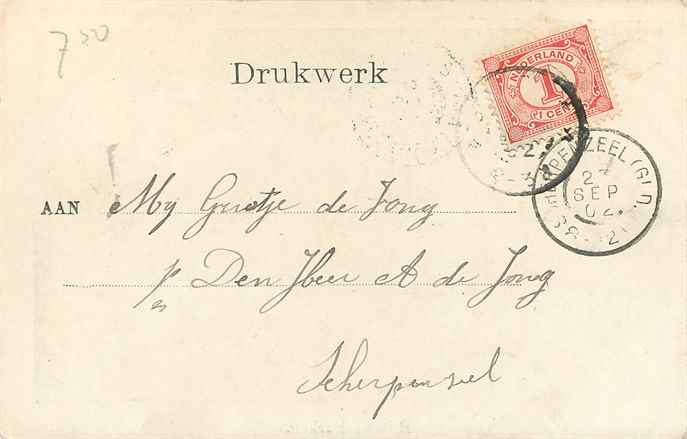 7 50
Drukwerk
NEDERLAND
1
CENT
SCHERPENZEEL (GLD).
24
SEP
02
AAN Mej Grietje de Jong
p/a Den Heer A de Jong
Scherpenzeel